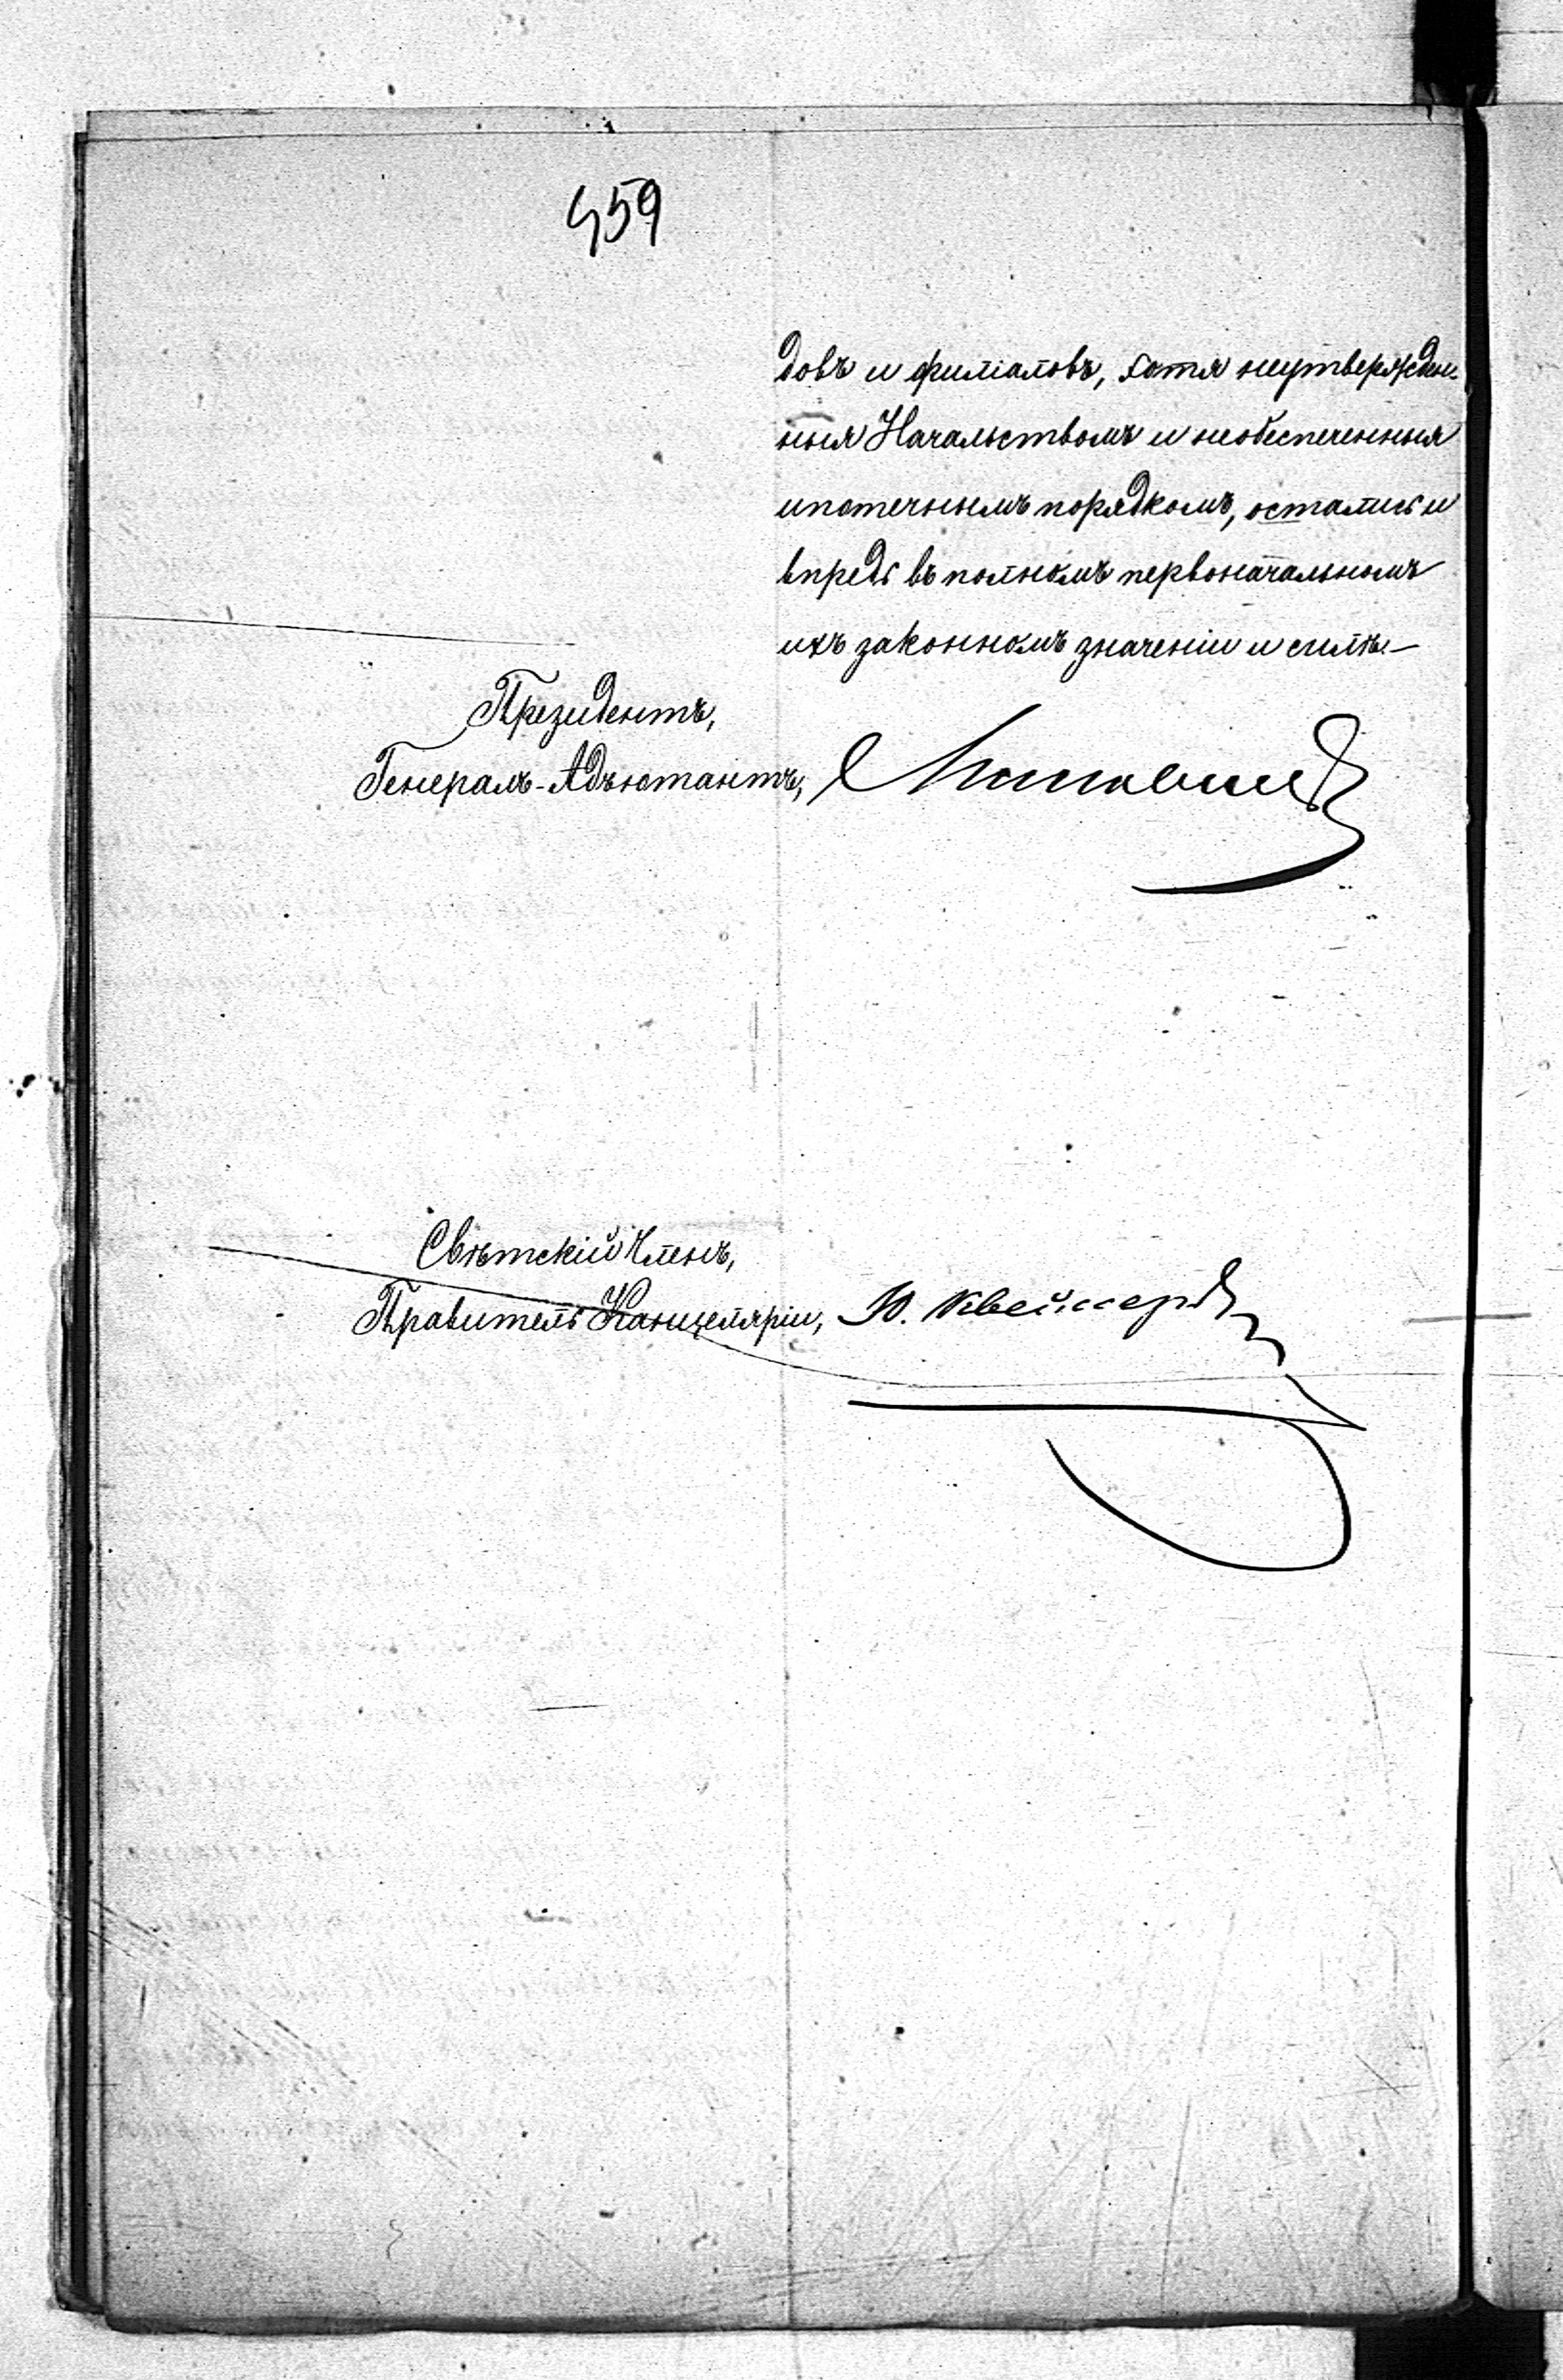 459
довъ и филіаловъ, хотя неутвержден-
ныя Начальствомъ и необеспеченныя
ипотечнымъ порядкомъ, остались и
впредь въ полномъ первоначальномъ
ихъ законномъ значеніи и силѣ.—
Президентъ,
Генералъ-Адъютантъ,
Свѣтскій Членъ,
Правитель Канцеляріи, Ю.